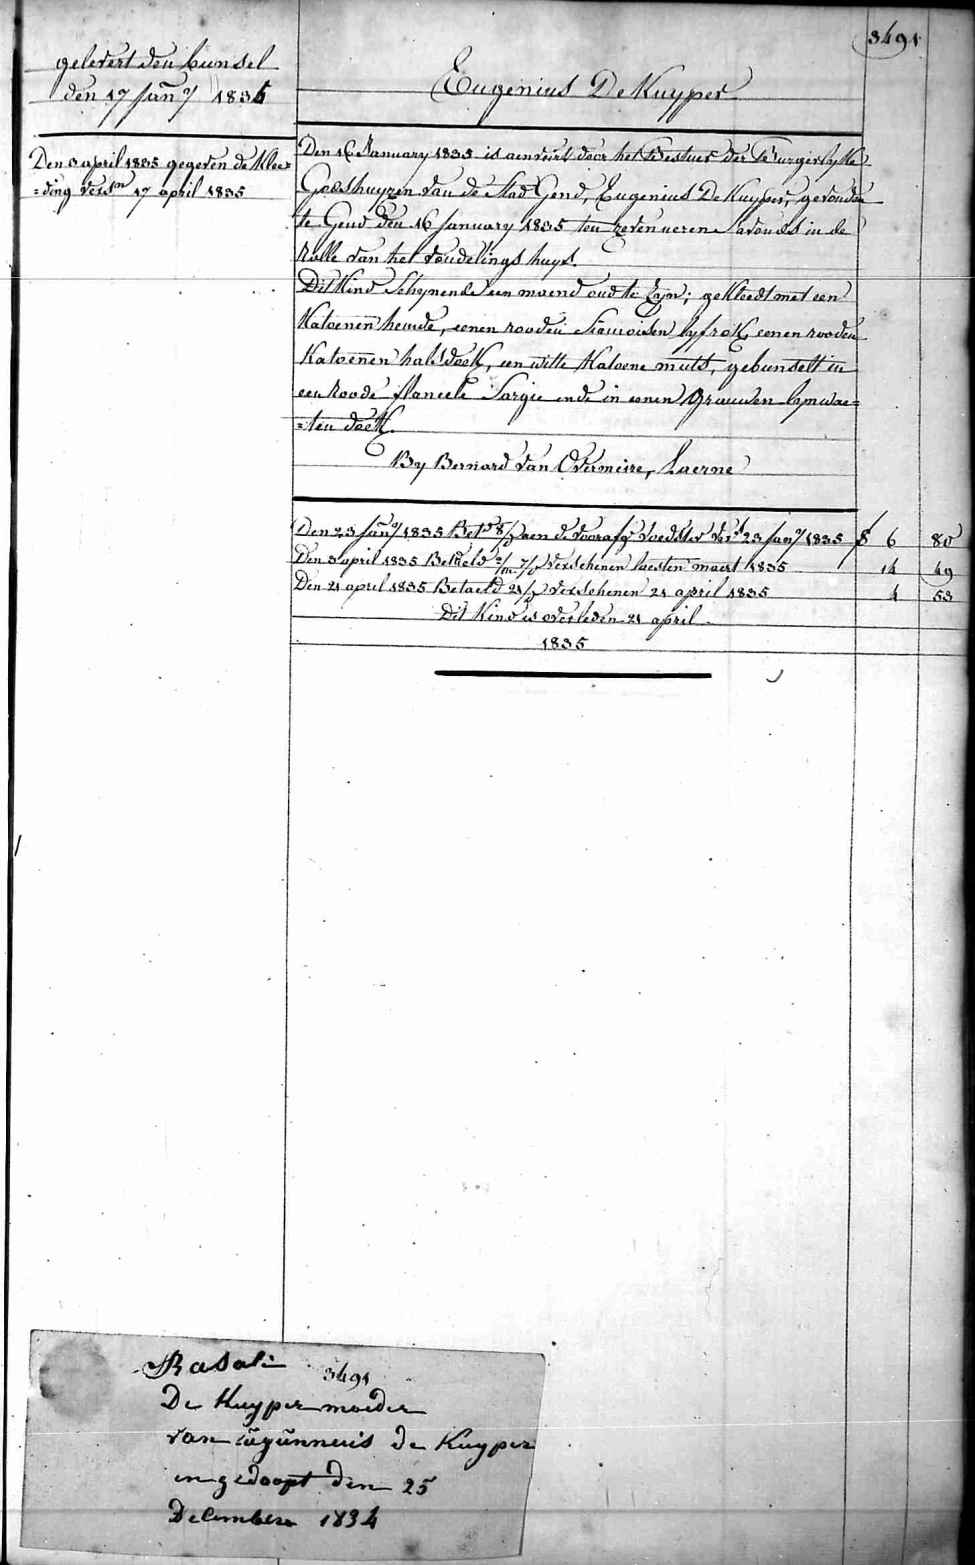 3491
gelevert den bunsel
den 17 Jan̄y 1835
Eugenius De Kuyper
Den 3 april 1835 gegeven de Klee=
=ding versn 17 april 1835
Den 16 January 1835 is aenveirt door het Bestuer der Burgerlyke
Godshuyzen van de Stad Gend, Eugenius De Kuyper, gevonden
te Gend den 16 January 1835 ten zeven ueren s'avonds in de
Rolle van het vondelings huys.
Dit Kind Schynende een maend oud te Zyn; gekleedt met een
Katoenen hemde, eenen rooden Siamoisen lyfrok, eenen rooden
Katoenen halsdoek, een witte Katoene muts, gebunselt in
een Roode flaneele Sargie ende in eenen Grauwen lynwae=
=ten doek.
By Bernard Van Overmeire, Laerne
Den 23 Jan̄y 1835 Betd 8/D aen de voorafge voedster vers 23 Jan̄y 1835 f 6 80
Den 3 april 1835 Betaeld 2/m 7/D verschenen laesten maert 1835 14 49
Den 21 april 1835 Betaeld 21/D verschenen 21 april 1835 4 53
Dit Kind is overleden 21 april
1835
Rasali 3491
De Kuyper moeder
van eugunneuis de Kuyper
en gedoopt den 25
Decembere 1834